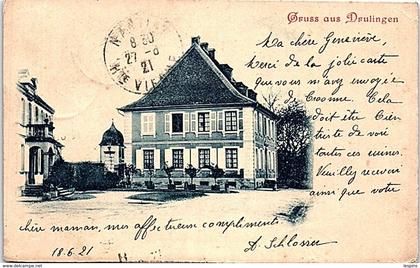 Gruss aus Drulingen
8 30
27-8
21
Hte VIEN
Ma chère Geneviève,
Merci de la jolie carte
que vous m'avez envoyée
de Craonne. Cela
doit être bien
triste de voir
toutes ces ruines.
Veuillez recevoir
ainsi que votre
chère maman, mes affectueux compliments
18.6.21
A. Schlosser